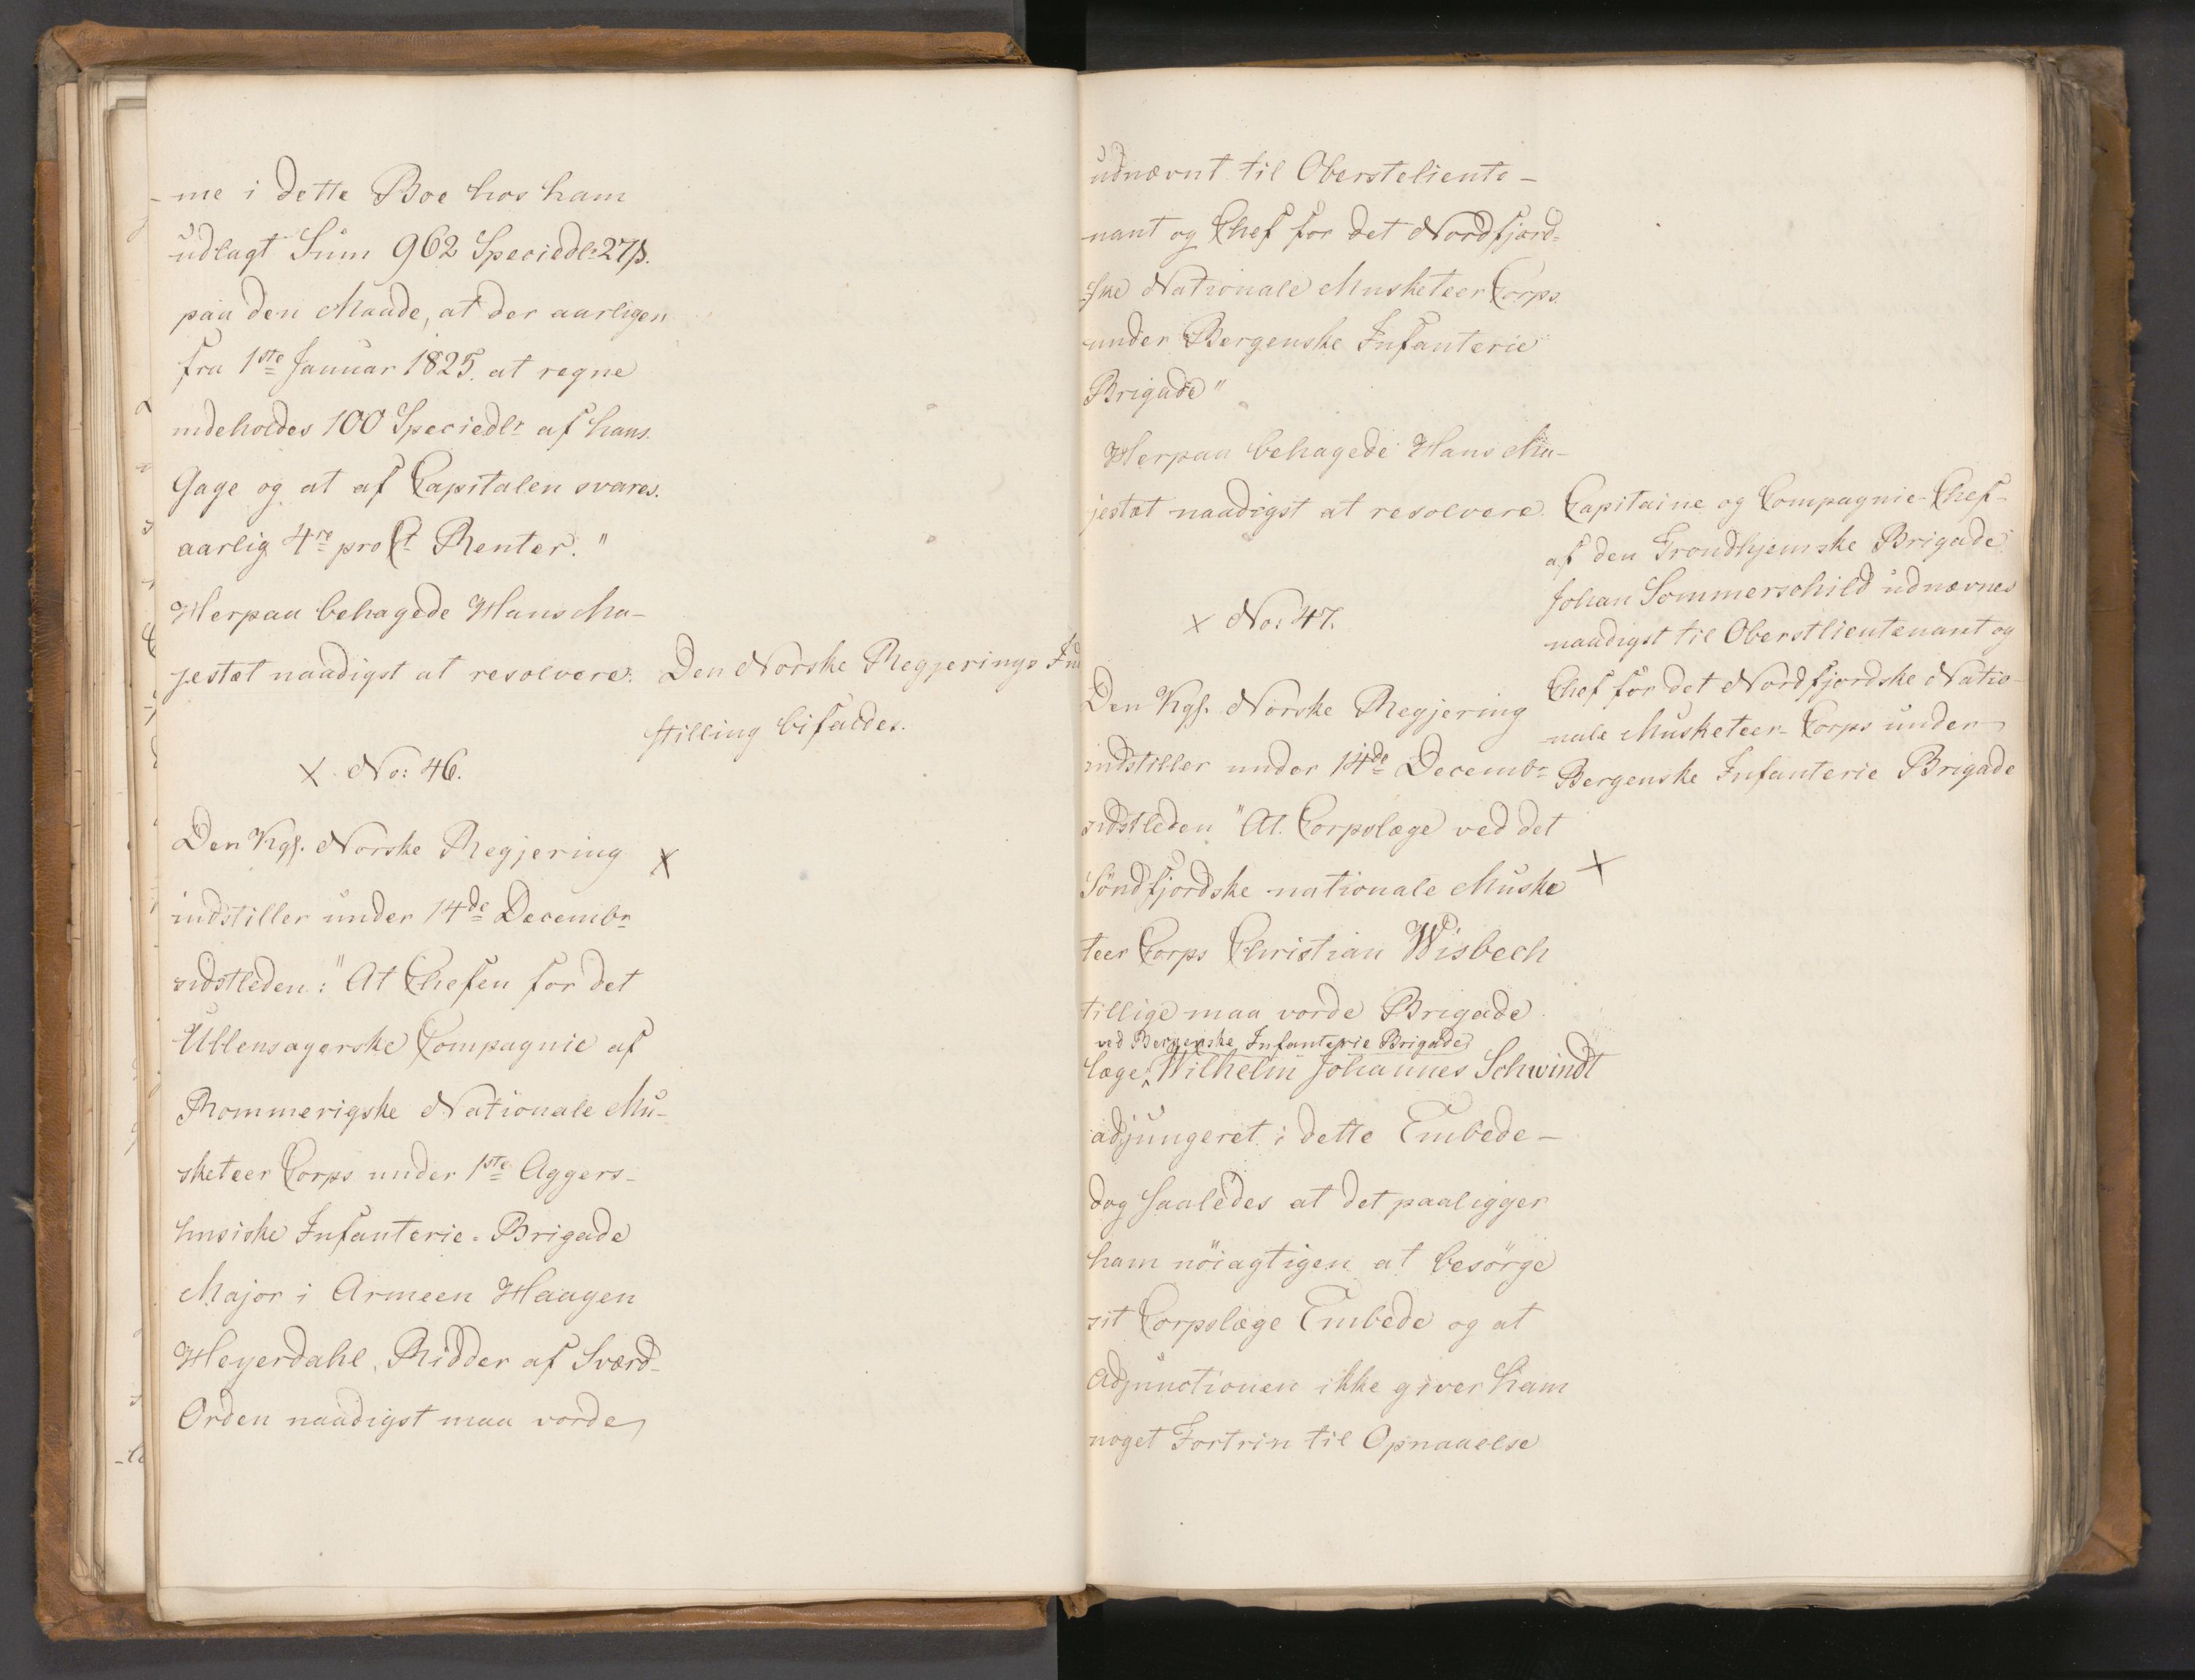 -me i dette Boe hos ham
udlagt Sum 962 Speciedlr 27 ß.
paa den Maade, at der aarligen
fra 1ste Januar 1825. at regne
indeholdes 100 Speciedlr af hans
Gage og at af Capitalen svares
aarlig 4re pro Ct Renter."
Herpaa behagede Hans Ma-
jestæt naadigst at resolvere: Den Norske Regjerings Ind
stilling bifaldes.
X No: 46.
Den Kgl. Norske Regjering X
indstiller under 14de Decembr
sidstleden: "At Chefen for det
Ullensagerske Compagnie af
Rommerigske Nationale Mu-
sketeer Corps under 1ste Aggers-
husiske Infanterie-Brigade
Major i Armeen Haagen
Heyerdahl, Ridder af Sværd-
Orden naadigst maa vorde
udnævnt til Obersteliente-
nant og Chef for det Nordfjord-
ske Nationale Musketeer Corps
under Bergenske Infanterie
Brigade"
Herpaa behagede Hans Ma-
jestæt naadigst at resolvere.
Capitaine og Compagnie-Chef
af den Trondhjemske Brigade
Johan Sommerschild udnævnes
naadigst til Oberstlientenant og
Chef for det Nordfjordske Natio-
nale Musketeer-Corps under
Bergenske Infanterie Brigade
X No: 47.
Den Kgl. Norske Regjering
indstiller under 14de Decembr
sidstleden "At Corpslæge ved det
Söndfjordske nationale Muske X
teer Corps Christian Wisbech
tillige maa vorde Brigade
ved Bergenske Infanterie Brigade
læge Wilhelm Johannes Schwindt
adjungeret i dette Embede-
dog saaledes at det paaligger
ham nöiagtigen at besörge
sit Corpslæge Embede og at
Adjunctionen ikke giver ham
noget Fortrin til Opnaaelse